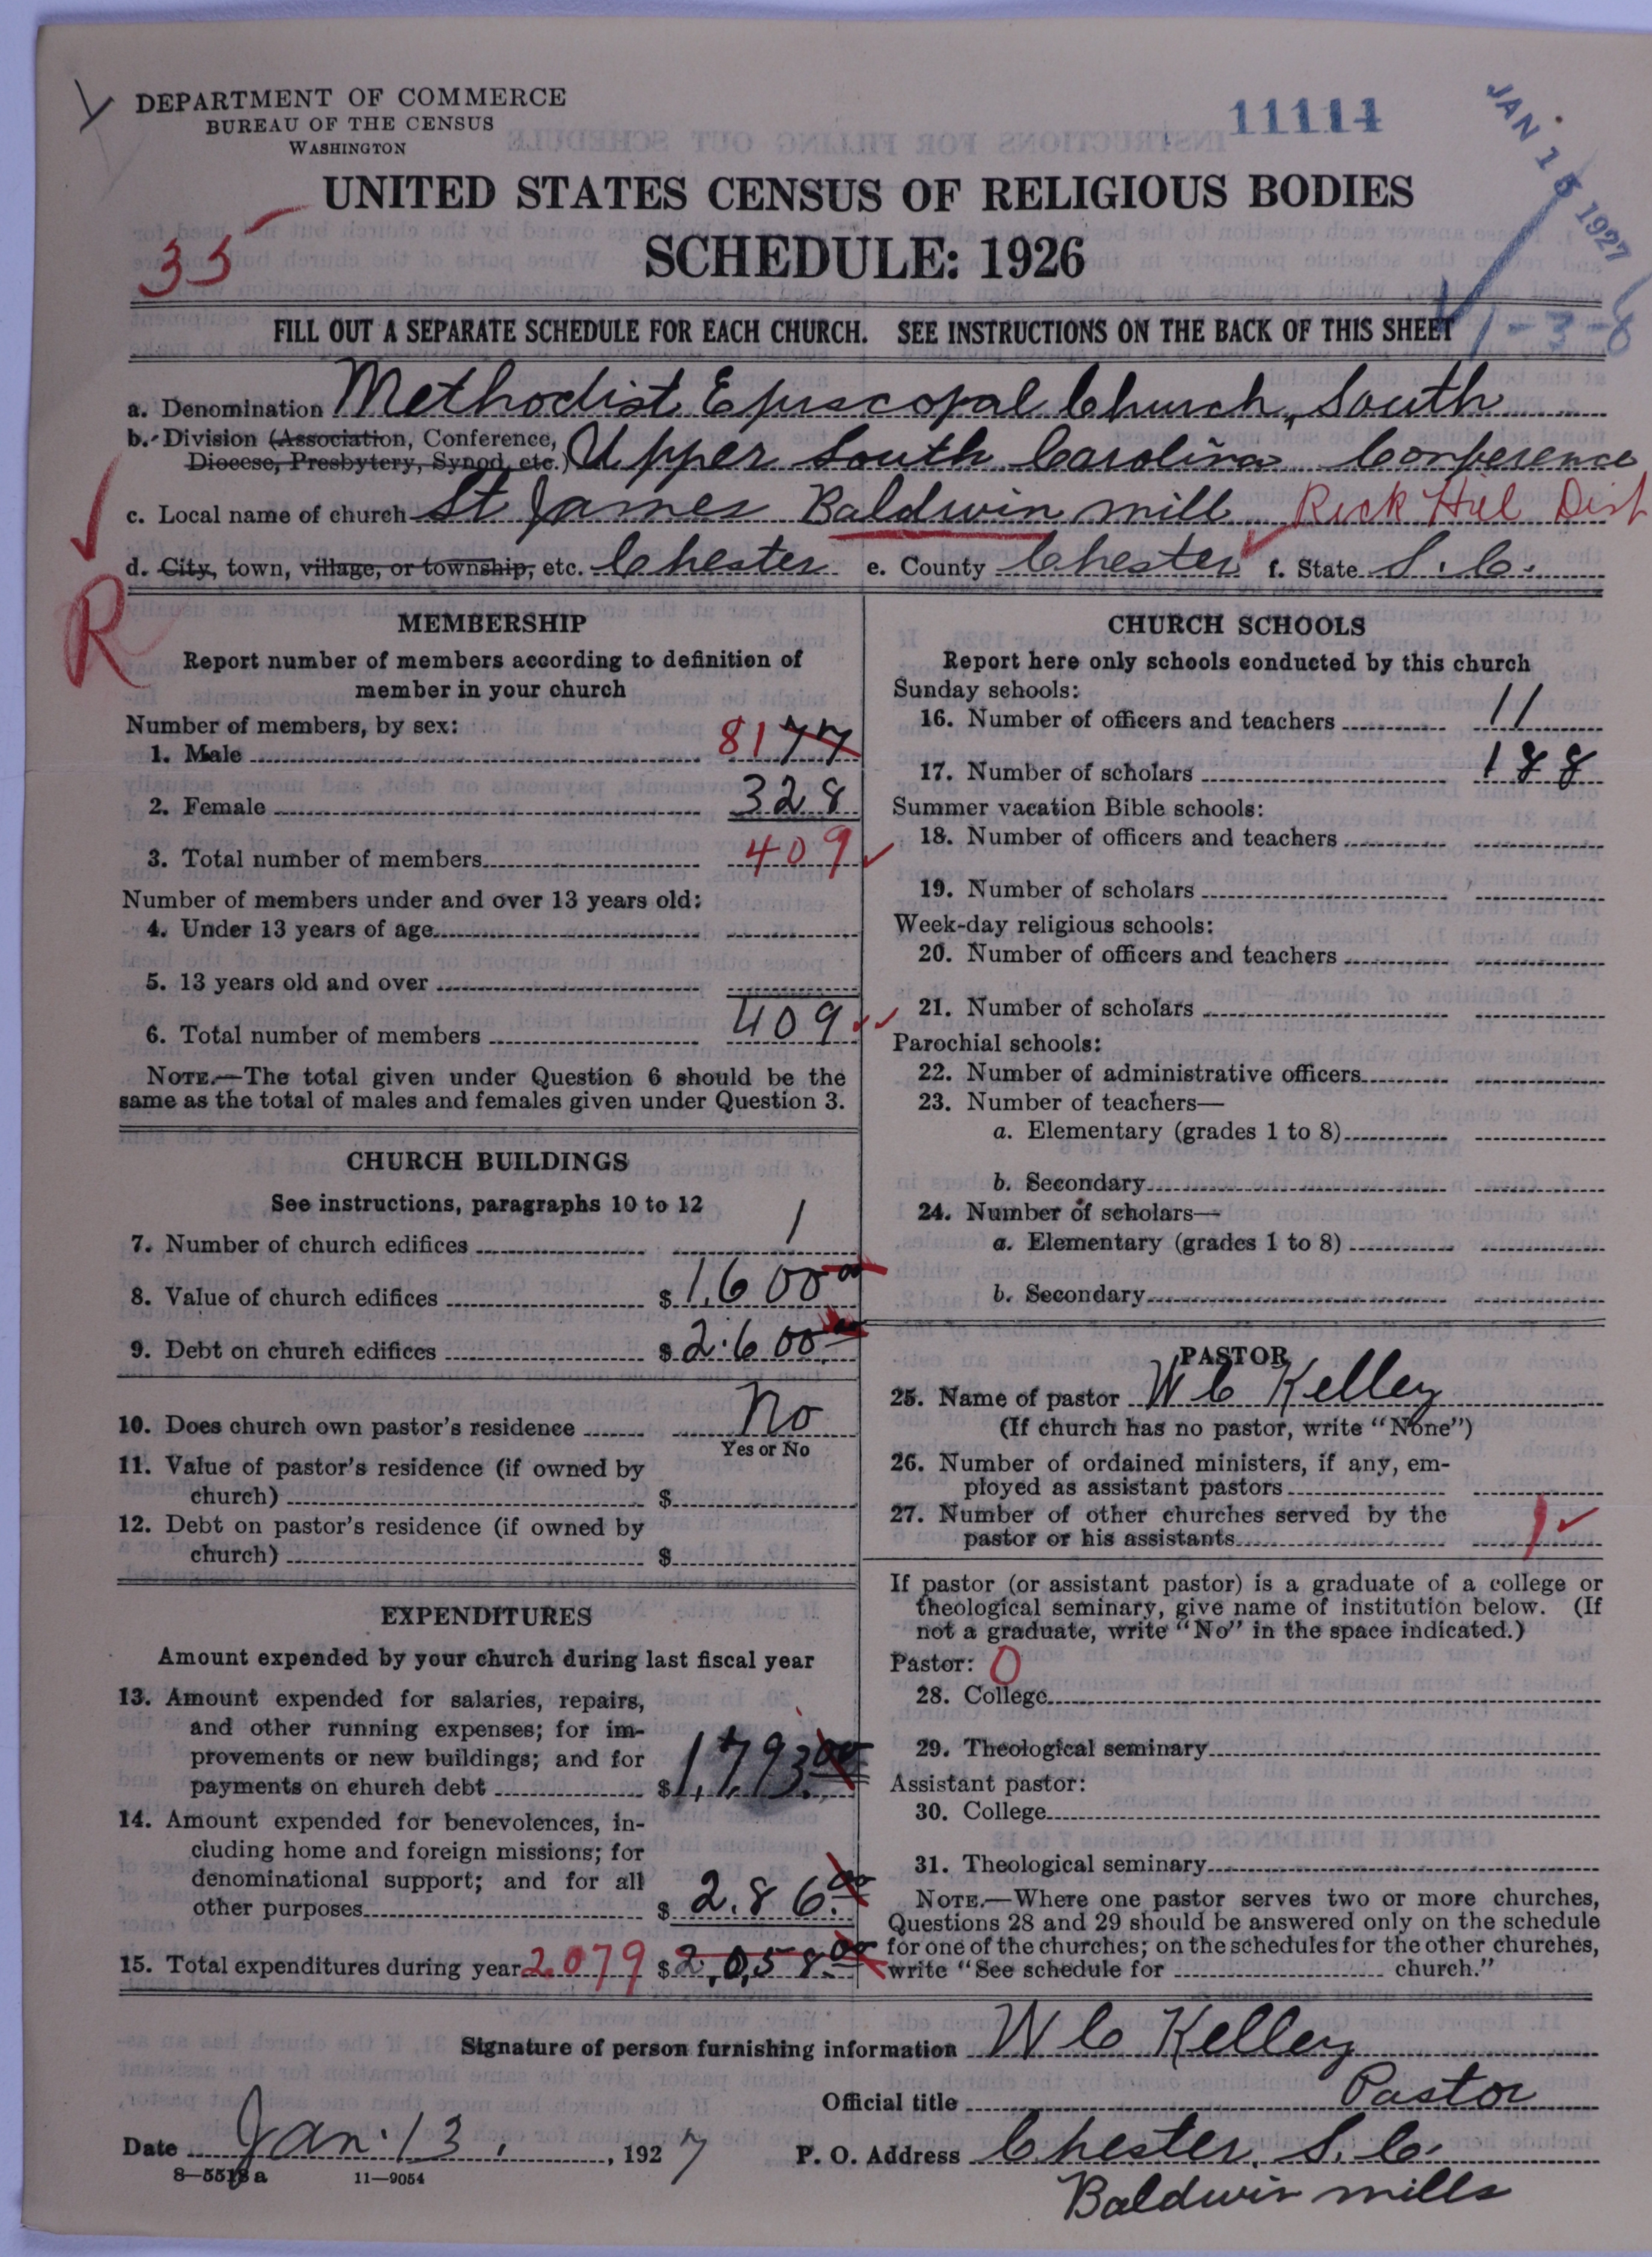 DEPARTMENT OF COMMERCE
BUREAU OF THE CENSUS
WASHINGTON
11114
JAN 15 1927
UNITED STATES CENSUS OF RELIGIOUS BODIES
SCHEDULE: 1926
35
FILL OUT A SEPARATE SCHEDULE FOR EACH CHURCH. SEE INSTRUCTIONS ON THE BACK OF THIS SHEET
1-3-6
a. Denomination Methodist Episcopal Church, South
b. Division (Association, Conference, Diocese, Presbytery, Synod, etc.) Upper South Carolina Conference
c. Local name of church St James Baldwin mill Rock Hill Dist
d. City, town, village, or township, etc. Chester e. County Chester f. State S.C.
R
MEMBERSHIP
Report number of members according to definition of
member in your church
Number of members, by sex:
1. Male 81 77
2. Female 328
3. Total number of members 409
Number of members under and over 13 years old:
4. Under 13 years of age
5. 13 years old and over
6. Total number of members 409
NOTE.—The total given under Question 6 should be the
same as the total of males and females given under Question 3.
CHURCH BUILDINGS
See instructions, paragraphs 10 to 12
7. Number of church edifices 1
8. Value of church edifices $ 1,600 00
9. Debt on church edifices $ 2.600 00
10. Does church own pastor's residence No
Yes or No
11. Value of pastor's residence (if owned by
church) $
12. Debt on pastor's residence (if owned by
church) $
EXPENDITURES
Amount expended by your church during last fiscal year
13. Amount expended for salaries, repairs,
and other running expenses; for im-
provements or new buildings; and for
payments on church debt $ 1,793.00
14. Amount expended for benevolences, in-
cluding home and foreign missions; for
denominational support; and for all
other purposes $ 2.86.00
15. Total expenditures during year 2079 $ 2,058.00
CHURCH SCHOOLS
Report here only schools conducted by this church
Sunday schools:
16. Number of officers and teachers 11
17. Number of scholars 188
Summer vacation Bible schools:
18. Number of officers and teachers
19. Number of scholars
Week-day religious schools:
20. Number of officers and teachers
21. Number of scholars
Parochial schools:
22. Number of administrative officers
23. Number of teachers—
a. Elementary (grades 1 to 8)
b. Secondary
24. Number of scholars—
a. Elementary (grades 1 to 8)
b. Secondary
PASTOR
25. Name of pastor W C Kelley
(If church has no pastor, write "None")
26. Number of ordained ministers, if any, em-
ployed as assistant pastors
27. Number of other churches served by the
pastor or his assistants 1
If pastor (or assistant pastor) is a graduate of a college or
theological seminary, give name of institution below. (If
not a graduate, write "No" in the space indicated.)
Pastor: 0
28. College
29. Theological seminary
Assistant pastor:
30. College
31. Theological seminary
NOTE.—Where one pastor serves two or more churches,
Questions 28 and 29 should be answered only on the schedule
for one of the churches; on the schedules for the other churches,
write "See schedule for church."
Signature of person furnishing information W C Kelley
Official title Pastor
Date Jan. 13, 1927 P. O. Address Chester, S.C.
Baldwin mills
8—5518a 11—9054